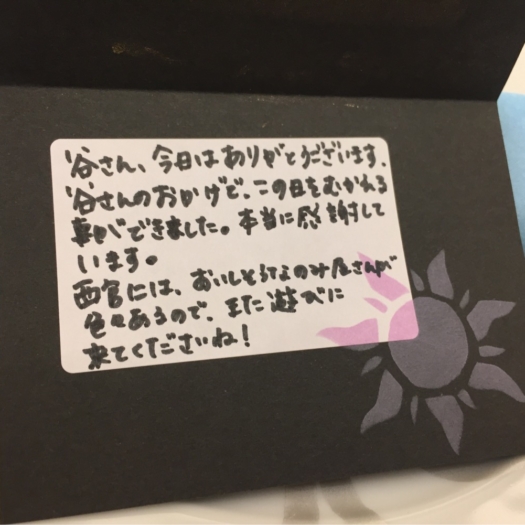 谷さん、今日はありがとうございます。
谷さんのおかげで、この日をむかえる
事ができました。本当に感謝して
います。
西宮には、おいしそうなのみ屋さんが
色々あるので、また遊びに
来てくださいね!